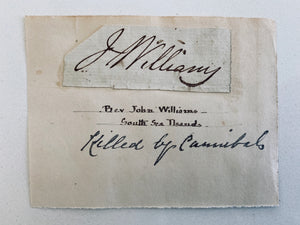 J Williams
Rev John Williams
South Sea Islands
Killed by Cannibals